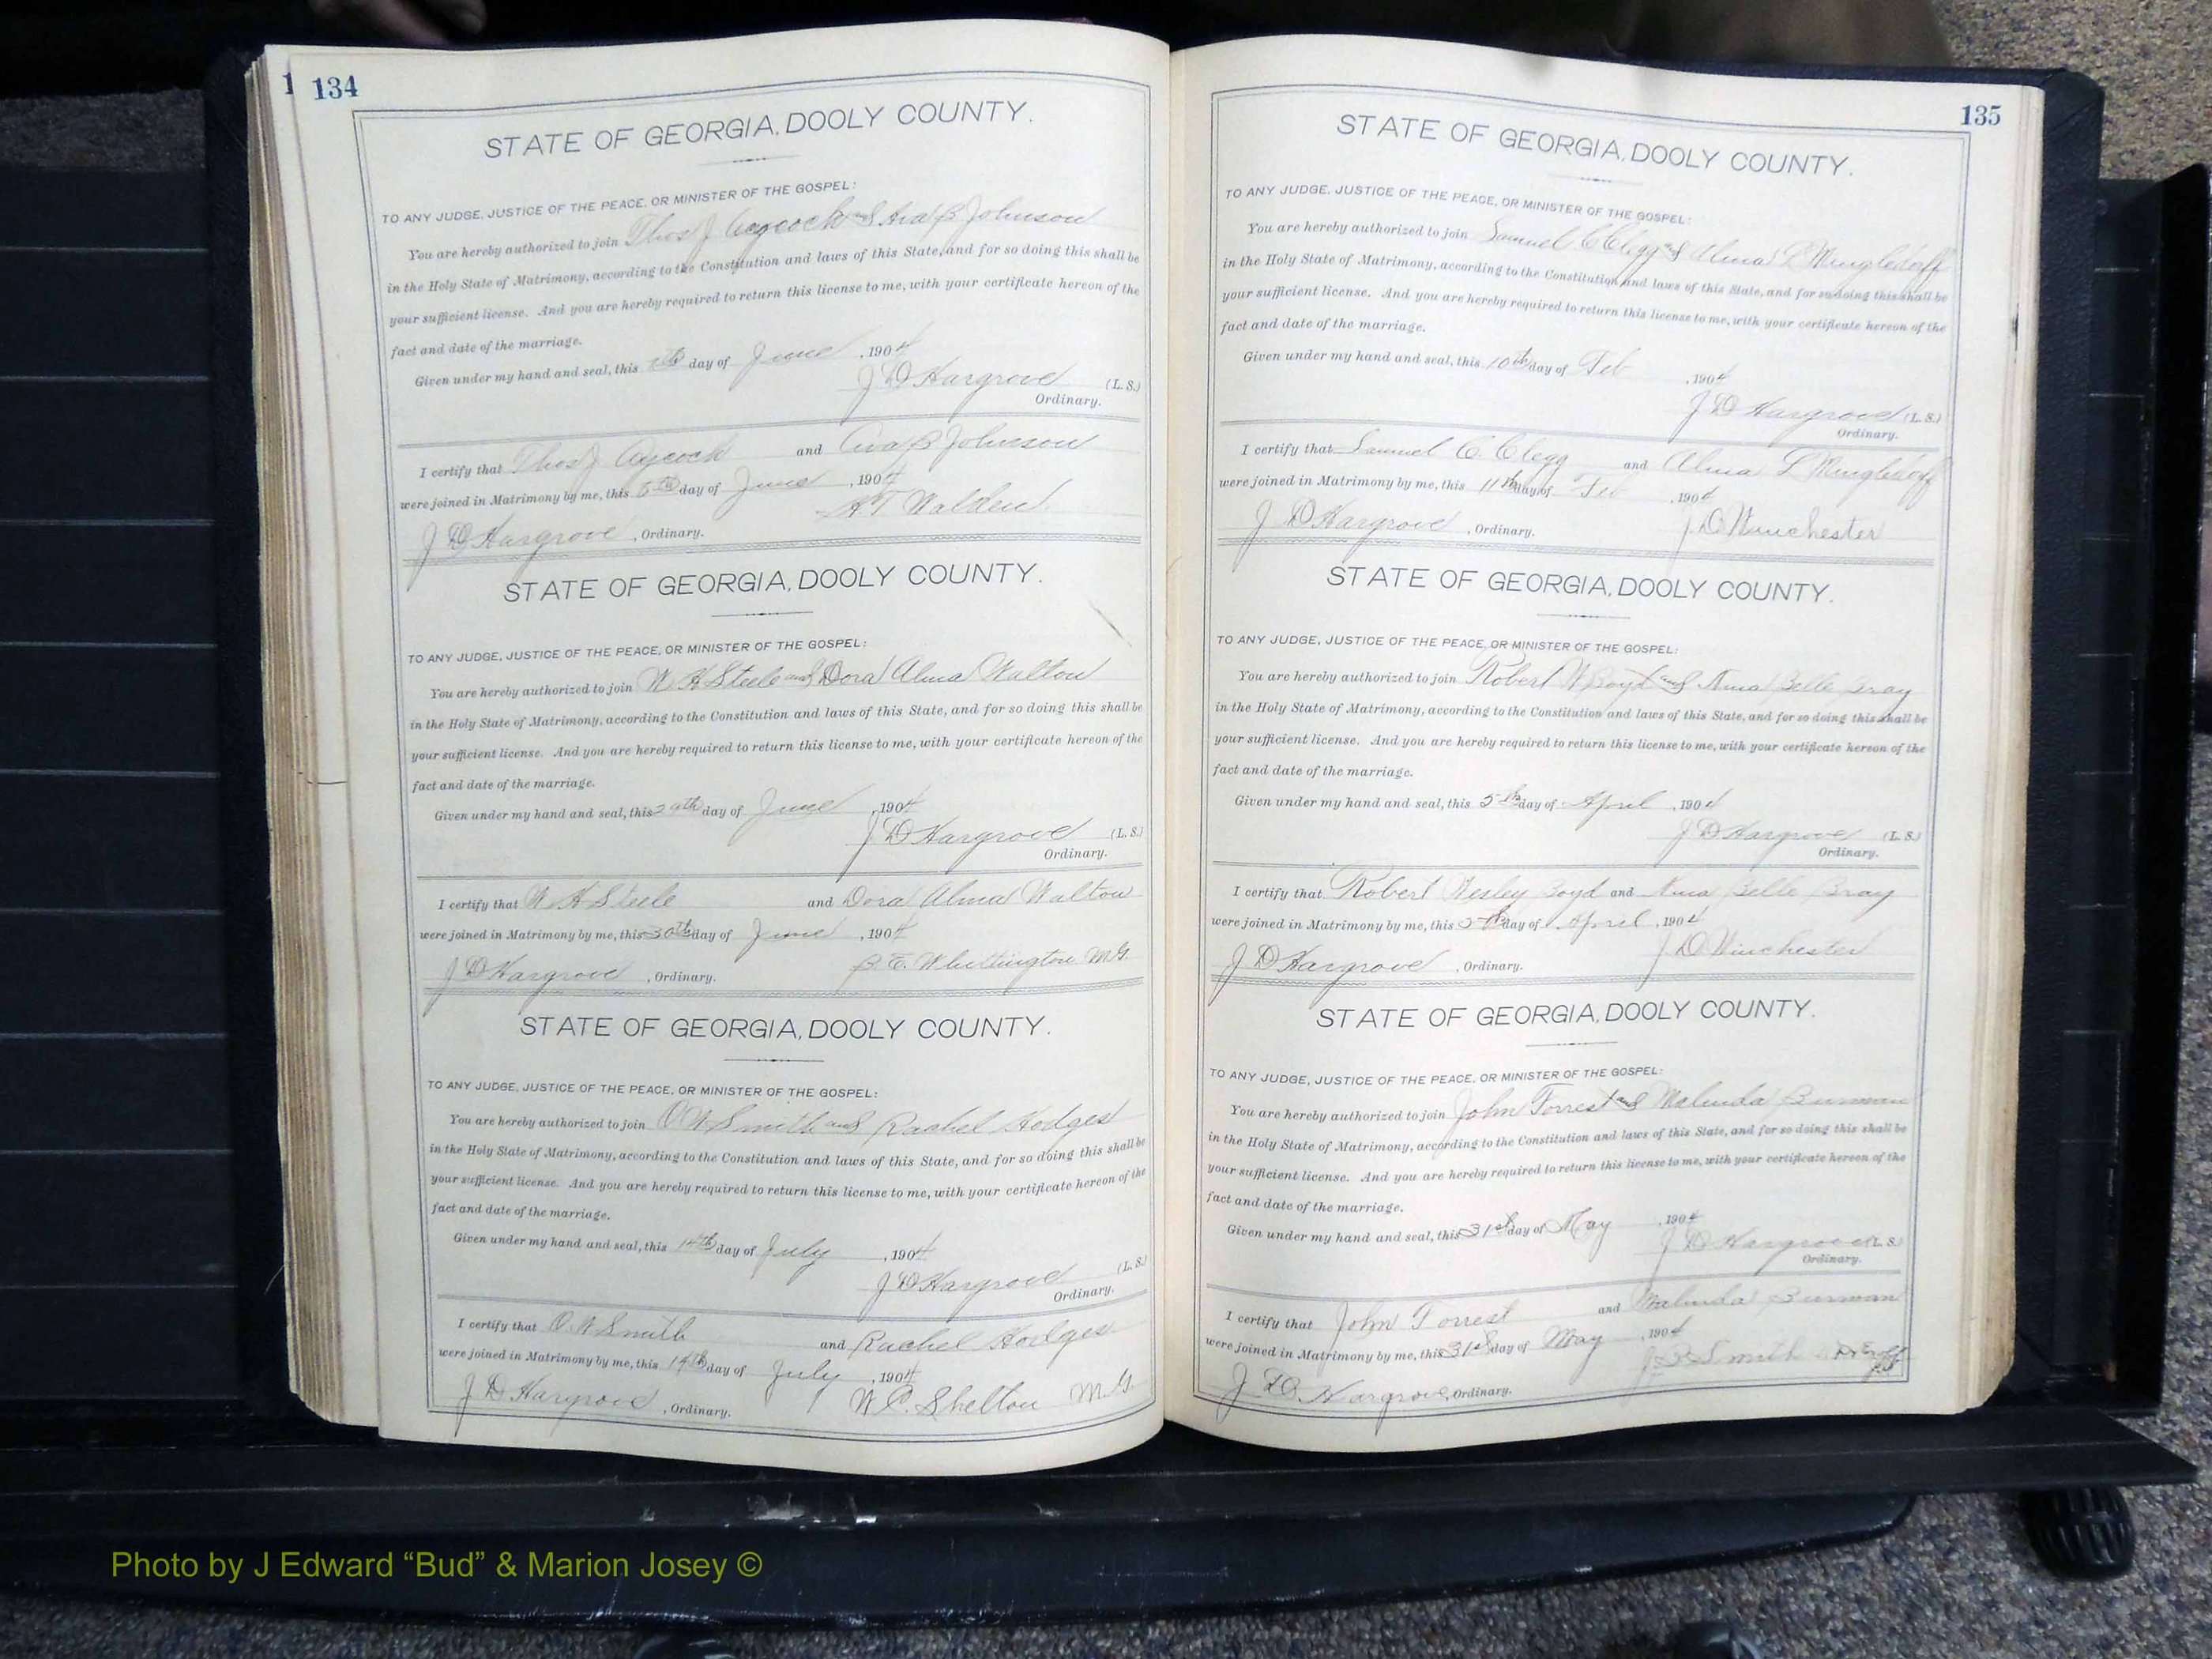 1 134
STATE OF GEORGIA, DOOLY COUNTY.
TO ANY JUDGE, JUSTICE OF THE PEACE, OR MINISTER OF THE GOSPEL:
You are hereby authorized to join Thos J Aycock and Ava B Johnson
in the Holy State of Matrimony, according to the Constitution and laws of this State, and for so doing this shall be
your sufficient license. And you are hereby required to return this license to me, with your certificate hereon of the
fact and date of the marriage.
Given under my hand and seal, this day of June, 1904
J D Hargrove (L. S.)
Ordinary.
I certify that Thos J Aycock and Ava B Johnson
were joined in Matrimony by me, this 5th day of June, 1904
H T Walden
J D Hargrove, Ordinary.
STATE OF GEORGIA, DOOLY COUNTY.
TO ANY JUDGE, JUSTICE OF THE PEACE, OR MINISTER OF THE GOSPEL:
You are hereby authorized to join W H Steele and Dora Alma Walton
in the Holy State of Matrimony, according to the Constitution and laws of this State, and for so doing this shall be
your sufficient license. And you are hereby required to return this license to me, with your certificate hereon of the
fact and date of the marriage.
Given under my hand and seal, this 29th day of June, 1904
J D Hargrove (L. S.)
Ordinary.
I certify that W H Steele and Dora Alma Walton
were joined in Matrimony by me, this 30th day of June, 1904
B. E. Whittington M G
J D Hargrove, Ordinary.
STATE OF GEORGIA, DOOLY COUNTY.
TO ANY JUDGE, JUSTICE OF THE PEACE, OR MINISTER OF THE GOSPEL:
You are hereby authorized to join O W Smith and Rachel Hodges
in the Holy State of Matrimony, according to the Constitution and laws of this State, and for so doing this shall be
your sufficient license. And you are hereby required to return this license to me, with your certificate hereon of the
fact and date of the marriage.
Given under my hand and seal, this 14th day of July, 1904
J D Hargrove (L. S.)
Ordinary.
I certify that O. W Smith and Rachel Hodges
were joined in Matrimony by me, this 14th day of July, 1904
W. C. Shelton M. G.
J D Hargrove, Ordinary.
135
STATE OF GEORGIA, DOOLY COUNTY.
TO ANY JUDGE, JUSTICE OF THE PEACE, OR MINISTER OF THE GOSPEL:
You are hereby authorized to join Samuel C Clegg and Alma L Mingledorff
in the Holy State of Matrimony, according to the Constitution and laws of this State, and for so doing this shall be
your sufficient license. And you are hereby required to return this license to me, with your certificate hereon of the
fact and date of the marriage.
Given under my hand and seal, this 10th day of Feb, 1904
J D Hargrove (L. S.)
Ordinary.
I certify that Samuel C. Clegg and Alma L Mingledorff
were joined in Matrimony by me, this 11th day of Feb, 1904
J D Hargrove, Ordinary. J. D Winchester
STATE OF GEORGIA, DOOLY COUNTY.
TO ANY JUDGE, JUSTICE OF THE PEACE, OR MINISTER OF THE GOSPEL:
You are hereby authorized to join Robert W Boyd and Nina Belle Bray
in the Holy State of Matrimony, according to the Constitution and laws of this State, and for so doing this shall be
your sufficient license. And you are hereby required to return this license to me, with your certificate hereon of the
fact and date of the marriage.
Given under my hand and seal, this 5th day of April, 1904
J D Hargrove (L. S.)
Ordinary.
I certify that Robert Wesley Boyd and Nina Belle Bray
were joined in Matrimony by me, this 5th day of April, 1904
J D Hargrove, Ordinary. J. D Winchester
STATE OF GEORGIA, DOOLY COUNTY.
TO ANY JUDGE, JUSTICE OF THE PEACE, OR MINISTER OF THE GOSPEL:
You are hereby authorized to join John Forrest and Malinda
in the Holy State of Matrimony, according to the Constitution and laws of this State, and for so doing this shall be
your sufficient license. And you are hereby required to return this license to me, with your certificate hereon of the
fact and date of the marriage.
Given under my hand and seal, this 31st day of May, 1904
J D Hargrove (L. S.)
Ordinary.
I certify that John Forrest and Malinda
were joined in Matrimony by me, this 31st day of May, 1904
Smith
J. D. Hargrove, Ordinary.
Photo by J Edward “Bud” & Marion Josey ©